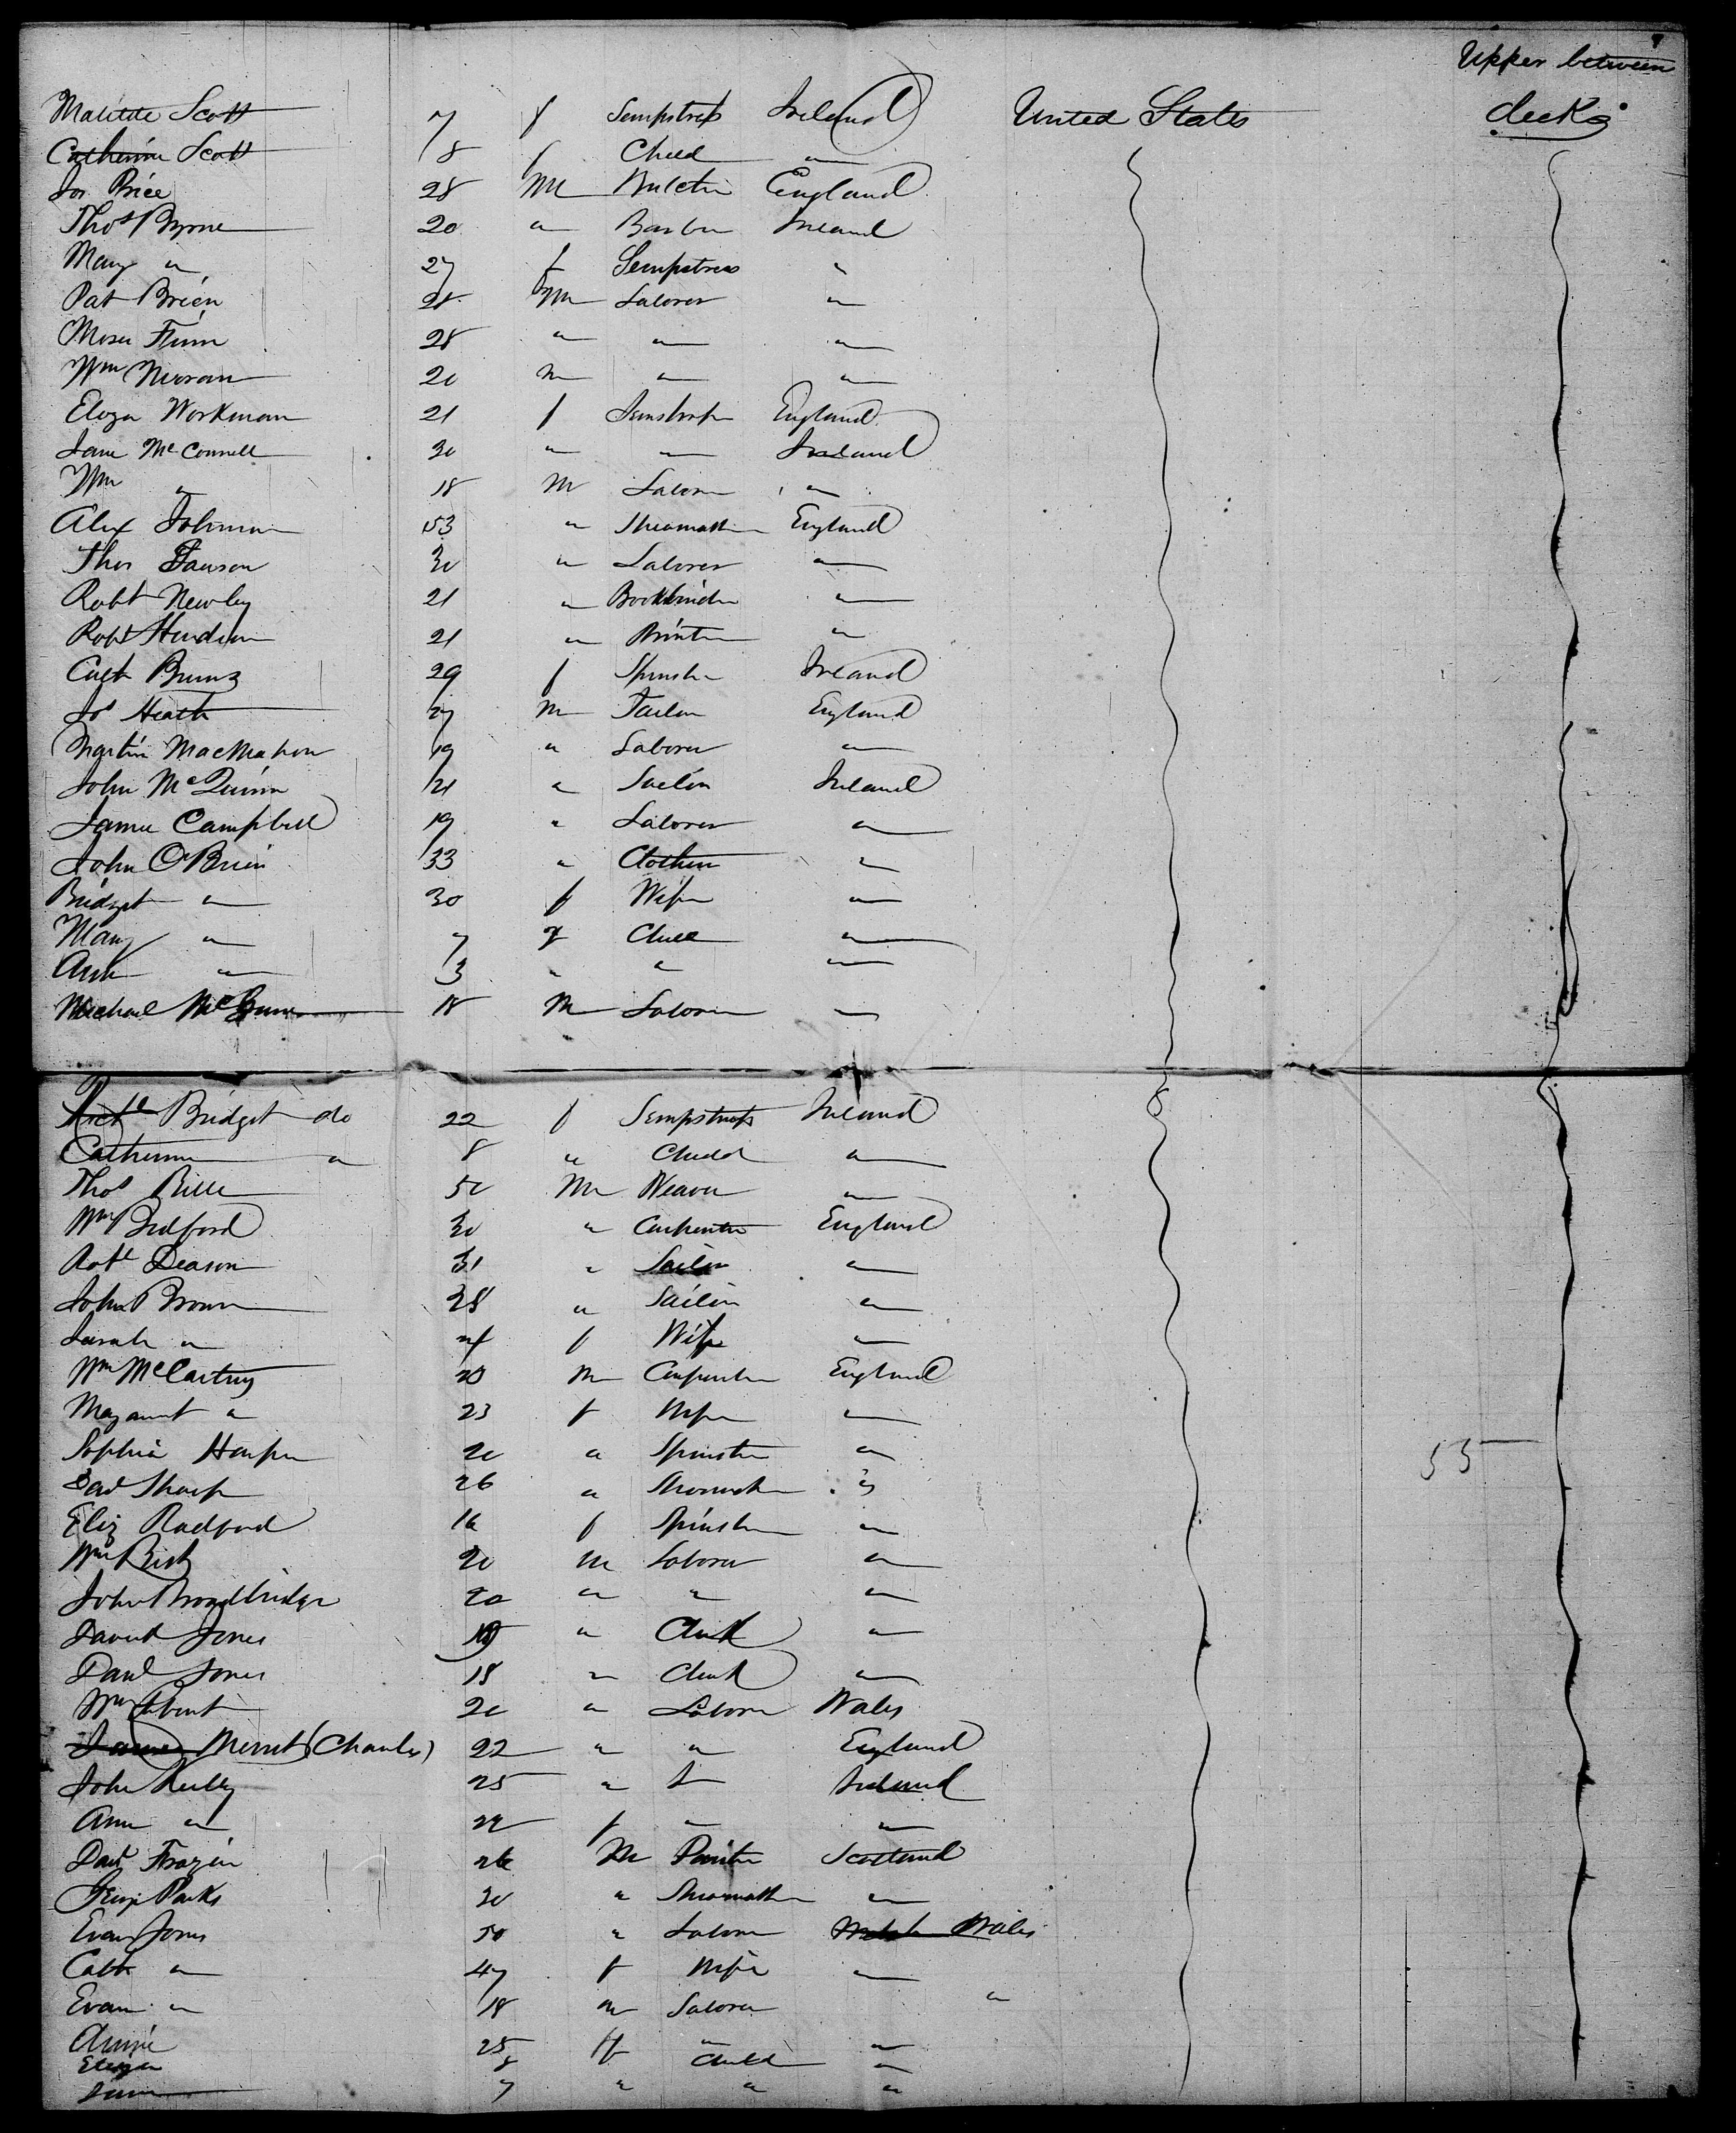 Upper between
Matilde Scott 7 f Sempstress Ireland United States decks
Catherine Scott 8 f Child "
Jos Price 28 M England
Thos Byrne 20 " Barber Ireland
Mary " 27 f Sempstress "
Pat Brien 21 M Laborer "
Moses Flinn 28 " " "
Wm Moran 20 m " "
Eliza Workman 21 f England
Jane McConnell 30 " " Ireland
Wm " 18 M Laborer "
Alex Johnson 53 " Shoemaker England
Thos Dawson 30 " Laborer "
Robt Newley 21 " Bookbinder "
Robt 21 " Printer "
Cath Burns 29 f Spinster Ireland
Jos Heath 27 M Tailor England
Martin MacMahon 19 " Laborer "
John McQuinn 21 " Sailor Ireland
James Campbell 19 " Laborer "
John O'Brien 33 " Clothier "
Bridget " 30 f Wife "
Mary " 7 f Child "
Ann " 3 " " "
Michael 18 M Laborer "
Bridget do 22 f Sempstress Ireland
Catherine " 8 " Child "
Thos 50 M Weaver "
Wm Bedford 30 " Carpenter England
Robt Deason 31 " "
John Brown 28 " Sailor "
Sarah " 24 f Wife "
Wm McCartney 20 M Carpenter England
Margaret " 23 f Wife "
Sophia Harper 20 " Spinster "
Sharp 26 " Shoemaker "
55
Eliz Radford 16 f Spinster "
Wm 20 M Laborer "
John Broadbridge 20 " " "
David Jones " Clerk "
Danl Jones 18 " Clerk "
Wm 20 " Laborer Wales
James Merrit (Charles) 22 " " England
John Kelly 25 " " Ireland
Ann " 22 f " "
Frazier 26 M Painter Scotland
Parks 30 " Shoemaker "
Evan Jones 50 " Laborer Wales
Cath " 47 f Wife "
Evan " 18 m Laborer "
Annie 25 f " "
Eliza 8 Child "
7 " " "